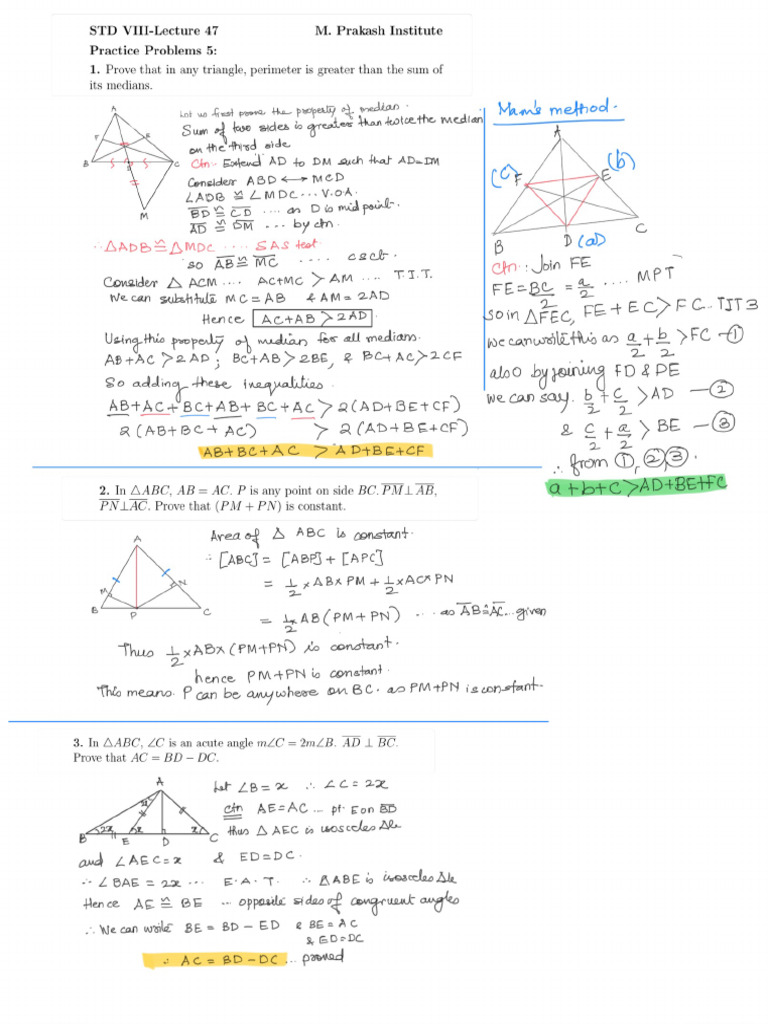 STD VIII-Lecture 47 M. Prakash Institute
Practice Problems 5:
1. Prove that in any triangle, perimeter is greater than the sum of
its medians.
A
F
E
B
C
D
S S
=
M
Let us first prove the property of median.
Sum of two sides is greater than twice the median
on the third side
Ctn:- Extend AD to DM such that AD=DM
Consider ABD ⟷ MCD
∠ADB ≅ ∠MDC ... V.O.A.
BD ≅ CD .... as D is mid point.
AD ≅ DM ... by ctn.
∴ △ADB ≅ △MDC .... SAS test
so AB ≅ MC .... c s c t.
Consider △ ACM .... AC+MC > AM .... T.I.T.
We can substitute MC = AB & AM = 2AD
Hence AC+AB > 2AD
Using this property of median for all medians.
AB+AC > 2AD ; BC+AB > 2BE, & BC+AC > 2CF
So adding these inequalities.
AB+AC+BC+AB+BC+AC > 2(AD+BE+CF)
2(AB+BC+AC) > 2(AD+BE+CF)
AB+BC+AC > AD+BE+CF
Mam's method.
A
(c) F
E (b)
B
D (a)
C
Ctn: Join FE
FE = BC/2 = a/2 .... MPT
so in △FEC, FE+EC > FC .. TIT 3
we can write this as a/2 + b/2 > FC —①
also by joining FD & DE
we can say. b/2 + c/2 > AD —②
& c/2 + a/2 > BE —③
∴ from ①,②,③.
a+b+c > AD+BE+FC
2. In △ABC, AB = AC. P is any point on side BC. PM ⊥ AB,
PN ⊥ AC. Prove that (PM + PN) is constant.
A
M
N
B
P
C
Area of △ ABC is constant.
∴ [ABC] = [ABP] + [APC]
= 1/2 × AB × PM + 1/2 × AC × PN
= 1/2 × AB (PM+PN) ... as AB ≅ AC ... given
Thus 1/2 × AB × (PM+PN) is constant.
hence PM+PN is constant.
This means P can be anywhere on BC. as PM+PN is constant.
3. In △ABC, ∠C is an acute angle m∠C = 2m∠B. AD ⊥ BC.
Prove that AC = BD − DC.
A
B
E
D
C
Let ∠B = x ∴ ∠C = 2x
ctn AE = AC ... pt. E on BD
thus △ AEC is isosceles △le
and ∠AEC = x & ED = DC.
∴ ∠BAE = 2x ... E.A.T. ∴ △ABE is isosceles △le
Hence AE ≅ BE ... opposite sides of congruent angles
∴ We can write BE = BD − ED & BE = AC
& ED = DC
∴ AC = BD − DC ... proved